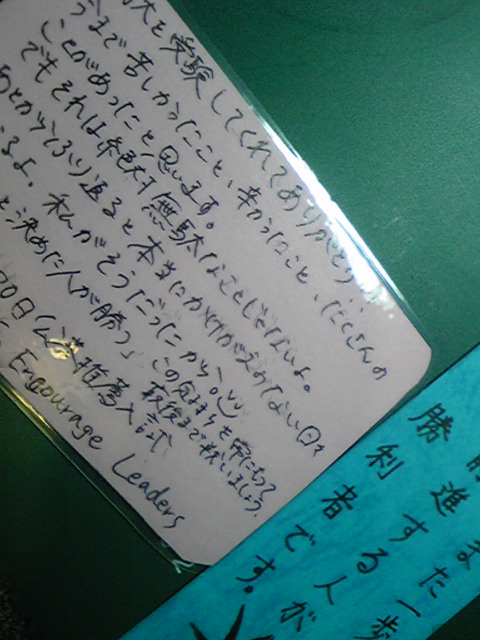 大を受験してくれてありがとう
今まで苦しかったこと、辛かったこと、たくさんの
ことがあったと思います。
でもそれは絶対無駄なことじゃないよ。
あとからふり返ると本当にかけがえのない日々
るよ。私がそうだったから。
と決めた人が勝つ」この気持ちを常にもって
最後まで戦いましょう。
10日(金)推薦入試
Encourage Leaders
また一歩
前進する人が
勝利者です。